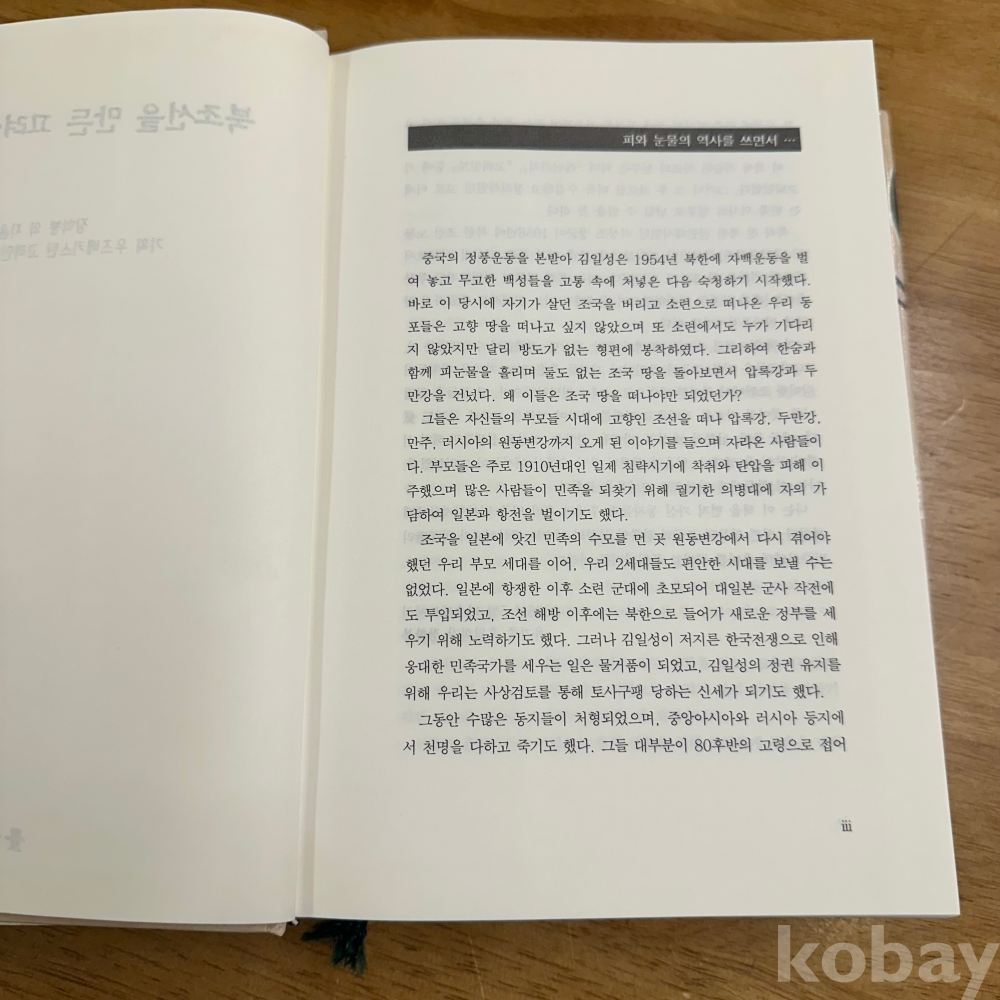 피와 눈물의 역사를 쓰면서 …
중국의 정풍운동을 본받아 김일성은 1954년 북한에 자백운동을 벌
여 놓고 무고한 백성들을 고통 속에 처넣은 다음 숙청하기 시작했다.
바로 이 당시에 자기가 살던 조국을 버리고 소련으로 떠나온 우리 동
포들은 고향 땅을 떠나고 싶지 않았으며 또 소련에서도 누가 기다리
지 않았지만 달리 방도가 없는 형편에 봉착하였다. 그리하여 한숨과
함께 피눈물을 흘리며 둘도 없는 조국 땅을 돌아보면서 압록강과 두
만강을 건넜다. 왜 이들은 조국 땅을 떠나야만 되었던가?
그들은 자신들의 부모들 시대에 고향인 조선을 떠나 압록강, 두만강,
만주, 러시아의 원동변강까지 오게 된 이야기를 들으며 자라온 사람들이
다. 부모들은 주로 1910년대인 일제 침략시기에 착취와 탄압을 피해 이
주했으며 많은 사람들이 민족을 되찾기 위해 궐기한 의병대에 자의 가
담하여 일본과 항전을 벌이기도 했다.
조국을 일본에 앗긴 민족의 수모를 먼 곳 원동변강에서 다시 겪어야
했던 우리 부모 세대를 이어, 우리 2세대들도 편안한 시대를 보낼 수는
없었다. 일본에 항쟁한 이후 소련 군대에 초모되어 대일본 군사 작전에
도 투입되었고, 조선 해방 이후에는 북한으로 들어가 새로운 정부를 세
우기 위해 노력하기도 했다. 그러나 김일성이 저지른 한국전쟁으로 인해
웅대한 민족국가를 세우는 일은 물거품이 되었고, 김일성의 정권 유지를
위해 우리는 사상검토를 통해 토사구팽 당하는 신세가 되기도 했다.
그동안 수많은 동지들이 처형되었으며, 중앙아시아와 러시아 등지에
서 천명을 다하고 죽기도 했다. 그들 대부분이 80후반의 고령으로 접어
iii
kobay